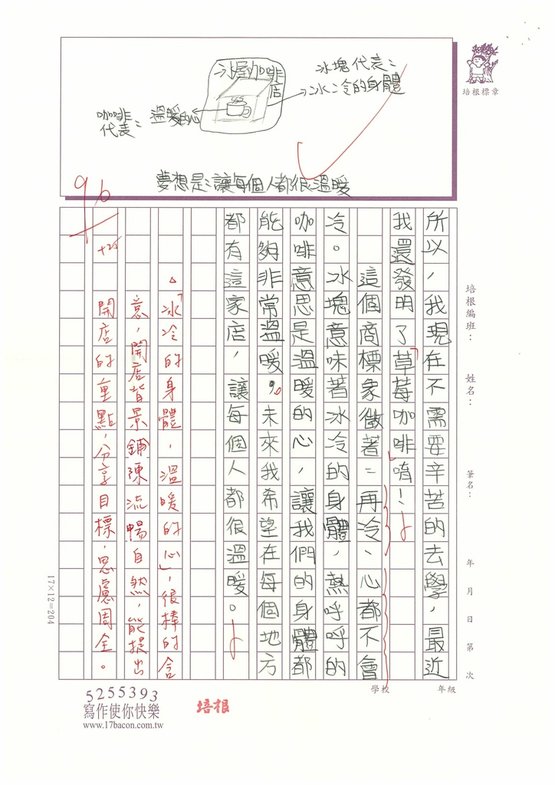 冰層咖啡店
冰塊代表：
冰冷的身體
咖啡
代表：溫暖的心
夢想是：讓每個人都很溫暖
培根標章
培根編班：
姓名：
筆名：
年 月 日 第 次
學校
年級
所以，我現在不需要辛苦的去學，最近
我還發明了「草莓咖啡」唷！
這個商標象徵著：再冷、心都不會
冷。冰塊意味著冰冷的身體，熱呼呼的
咖啡意思是溫暖的心，讓我們的身體都
能夠非常溫暖。未來我希望在每個地方
都有這家店，讓每個人都很溫暖。
96
+2
「冰冷的身體，溫暖的心」，很棒的含
意，開店背景鋪陳流暢自然，能提出
開店的重點，分享目標，思慮周全。
17×12=204
5255393
寫作使你快樂
www.17bacon.com.tw
培根